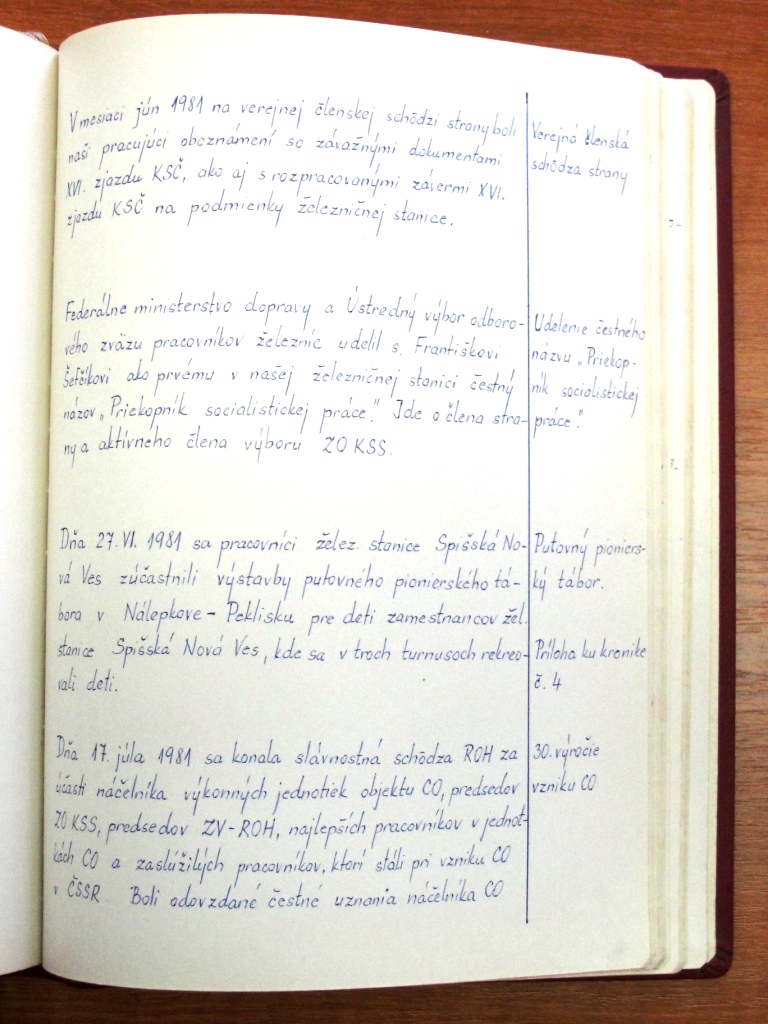 V mesiaci jún 1981 na verejnej členskej schôdzi strany boli
naši pracujúci oboznámení so závažnými dokumentami
XVI. zjazdu KSČ, ako aj s rozpracovanými závermi XVI.
zjazdu KSČ na podmienky železničnej stanice.
Verejná členská
schôdza strany
Federálne ministerstvo dopravy a Ústredný výbor odboro-
vého zväzu pracovníkov železníc udelil s. Františkovi
Šefčíkovi ako prvému v našej železničnej stanici čestný
názov „Priekopník socialistickej práce." Ide o člena stra-
ny a aktívneho člena výboru ZO KSS.
Udelenie čestného
názvu „Priekop-
ník socialistickej
práce".
Dňa 27. VI. 1981 sa pracovníci želez. stanice Spišská No-
vá Ves zúčastnili výstavby putovného pionierského tá-
bora v Nálepkove - Peklisku pre deti zamestnancov žel.
stanice Spišská Nová Ves, kde sa v troch turnusoch rekreo-
vali deti.
Putovný pioniers-
ký tábor.
Príloha ku kronike
č. 4
Dňa 17. júla 1981 sa konala slávnostná schôdza ROH za
účasti náčelníka výkonných jednotiek objektu CO, predsedov
ZO KSS, predsedov ZV-ROH, najlepších pracovníkov v jednot-
kách CO a zaslúžilých pracovníkov, ktorí stáli pri vzniku CO
v ČSSR. Boli odovzdané čestné uznania náčelníka CO
30. výročie
vzniku CO